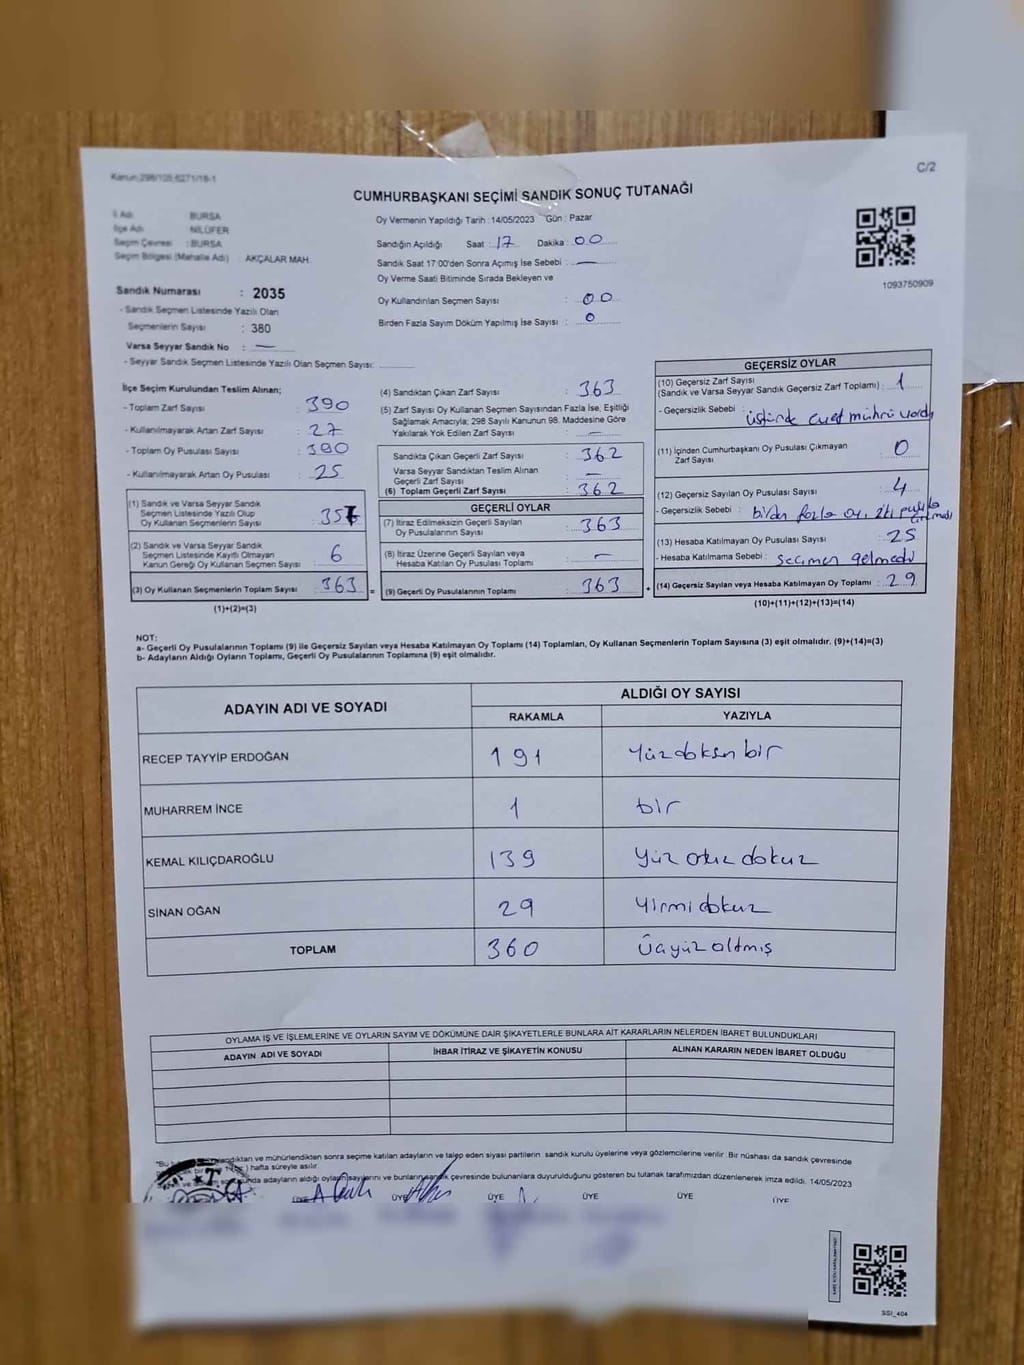 Kanun:298/105,6271/18-1
C/2
CUMHURBAŞKANI SEÇİMİ SANDIK SONUÇ TUTANAĞI
İl Adı : BURSA
İlçe Adı : NİLÜFER
Seçim Çevresi : BURSA
Seçim Bölgesi (Mahalle Adı) AKÇALAR MAH.
Sandık Numarası : 2035
- Sandık Seçmen Listesinde Yazılı Olan
Seçmenlerin Sayısı : 380
Varsa Seyyar Sandık No : —
- Seyyar Sandık Seçmen Listesinde Yazılı Olan Seçmen Sayısı:
Oy Vermenin Yapıldığı Tarih : 14/05/2023 Gün : Pazar
Sandığın Açıldığı Saat : 17 Dakika : 00
Sandık Saat 17:00'den Sonra Açımış İse Sebebi : —
Oy Verme Saati Bitiminde Sırada Bekleyen ve
Oy Kullandırılan Seçmen Sayısı : 00
Birden Fazla Sayım Döküm Yapılmış İse Sayısı : 0
1093750909
İlçe Seçim Kurulundan Teslim Alınan;
- Toplam Zarf Sayısı : 390
- Kullanılmayarak Artan Zarf Sayısı : 27
- Toplam Oy Pusulası Sayısı : 390
- Kullanılmayarak Artan Oy Pusulası : 25
(1) Sandık ve Varsa Seyyar Sandık
Seçmen Listesinde Yazılı Olup
Oy Kullanan Seçmenlerin Sayısı : 357
(2) Sandık ve Varsa Seyyar Sandık
Seçmen Listesinde Kayıtlı Olmayan
Kanun Gereği Oy Kullanan Seçmen Sayısı : 6
(3) Oy Kullanan Seçmenlerin Toplam Sayısı : 363
(1)+(2)=(3)
(4) Sandıktan Çıkan Zarf Sayısı : 363
(5) Zarf Sayısı Oy Kullanan Seçmen Sayısından Fazla İse, Eşitliği
Sağlamak Amacıyla; 298 Sayılı Kanunun 98. Maddesine Göre
Yakılarak Yok Edilen Zarf Sayısı : —
Sandıkta Çıkan Geçerli Zarf Sayısı : 362
Varsa Seyyar Sandıktan Teslim Alınan
Geçerli Zarf Sayısı : —
(6) Toplam Geçerli Zarf Sayısı : 362
GEÇERLİ OYLAR
(7) İtiraz Edilmeksizin Geçerli Sayılan
Oy Pusulalarının Sayısı : 363
(8) İtiraz Üzerine Geçerli Sayılan veya
Hesaba Katılan Oy Pusulası Toplamı : —
= (9) Geçerli Oy Pusulalarının Toplamı : 363 +
GEÇERSİZ OYLAR
(10) Geçersiz Zarf Sayısı
(Sandık ve Varsa Seyyar Sandık Geçersiz Zarf Toplamı) : 1
- Geçersizlik Sebebi : üstünde evet mührü vardı
(11) İçinden Cumhurbaşkanı Oy Pusulası Çıkmayan
Zarf Sayısı : 0
(12) Geçersiz Sayılan Oy Pusulası Sayısı : 4
- Geçersizlik Sebebi : birden fazla oy, iki pusula
(13) Hesaba Katılmayan Oy Pusulası Sayısı : 25
- Hesaba Katılmama Sebebi : seçmen gelmedi
(14) Geçersiz Sayılan veya Hesaba Katılmayan Oy Toplamı : 29
(10)+(11)+(12)+(13)=(14)
NOT:
a- Geçerli Oy Pusulalarının Toplamı (9) ile Geçersiz Sayılan veya Hesaba Katılmayan Oy Toplamı (14) Toplamları, Oy Kullanan Seçmenlerin Toplam Sayısına (3) eşit olmalıdır. (9)+(14)=(3)
b- Adayların Aldığı Oyların Toplamı, Geçerli Oy Pusulalarının Toplamına (9) eşit olmalıdır.
ADAYIN ADI VE SOYADI
ALDIĞI OY SAYISI
RAKAMLA YAZIYLA
RECEP TAYYİP ERDOĞAN 191 Yüzdoksan bir
MUHARREM İNCE 1 bir
KEMAL KILIÇDAROĞLU 139 Yüz otuz dokuz
SİNAN OĞAN 29 Yirmidokuz
TOPLAM 360 Üçyüz altmış
OYLAMA İŞ VE İŞLEMLERİNE VE OYLARIN SAYIM VE DÖKÜMÜNE DAİR ŞİKAYETLERLE BUNLARA AİT KARARLARIN NELERDEN İBARET BULUNDUKLARI
ADAYIN ADI VE SOYADI İHBAR İTİRAZ VE ŞİKAYETİN KONUSU ALINAN KARARIN NEDEN İBARET OLDUĞU
ve mühürlendikten sonra seçime katılan adayların ve talep eden siyasi partilerin sandık kurulu üyelerine veya gözlemcilerine verilir. Bir nüshası da sandık çevresinde
hafta süreyle asılır.
adayların aldığı oyların sayılarını ve bunların sandık çevresinde bulunanlara duyurulduğunu gösteren bu tutanak tarafımızdan düzenlenerek imza edildi. 14/05/2023
ÜYE ÜYE ÜYE ÜYE ÜYE ÜYE
SSİ_404